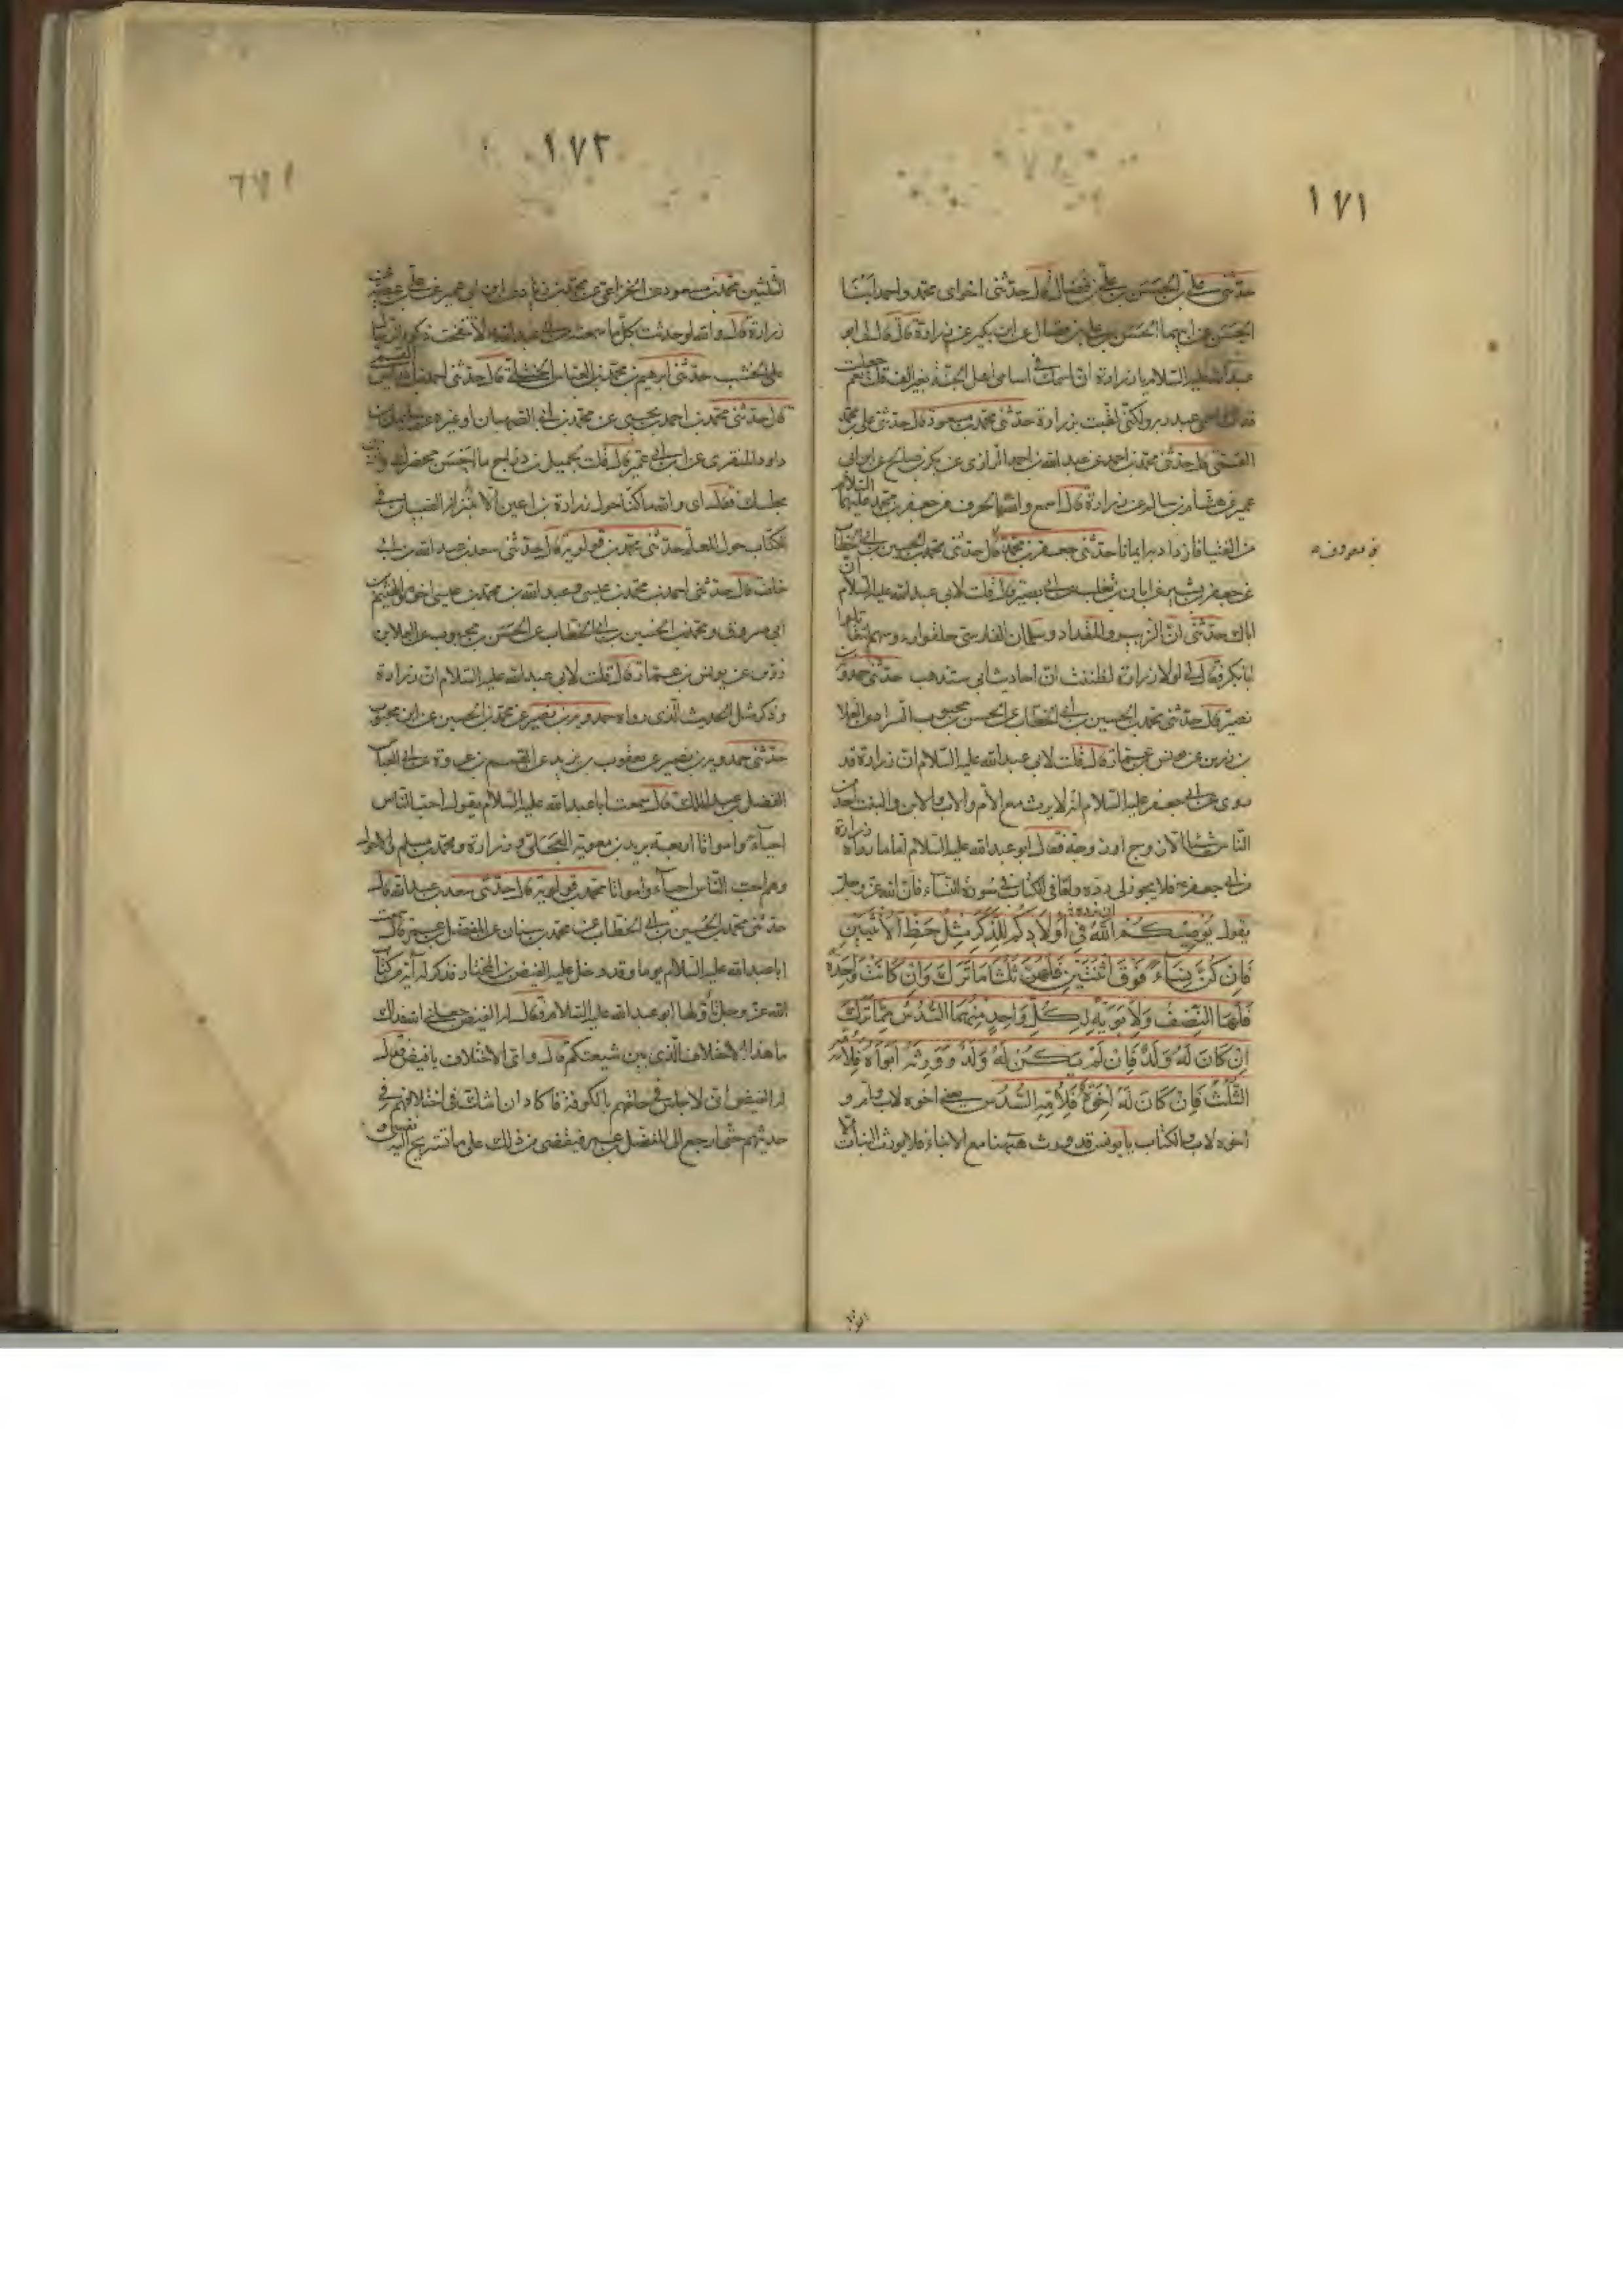 ١٧١
حدثنى على بن الحسن بن على بن فضال قال حدثنى اخواى محمد واحمد ابنا
الحسن عن ابيهما الحسن بن على بن فضال عن ابن بكير عن زرارة قال قال لى ابو
عبدالله عليه السلام يا زرارة ان اسمك فى اسامى اهل الجنة بغير الف قلت نعم جعلت
فداك اسمى عبد ربه ولكنى لقبت بزرارة حدثنى محمد بن مسعود قال حدثنى على بن محمد
القمى قال حدثنى محمد بن احمد عن عبد الله بن احمد الرازى عن بكر بن صالح عن ابن ابى
عمير عن هشام بن سالم عن زرارة قال اسمع والله بالحرف من جعفر بن محمد عليهما السلام
من الفتيا فازداد به ايمانا حدثنى جعفر بن محمد بن قال حدثنى محمد بن الحسين بن ابى الخطاب
ن معروف ه
عن جعفر بن بشير عن ابان بن تغلب عن ابى بصير قال قلت لابى عبد الله عليه السلام ان
اباك حدثنى ان الزبير والمقداد وسلمان الفارسى حلقوا رءوسهم ليقاتلوا
ابا بكر فقال لى لولا زرارة لظننت ان احاديث ابى ستذهب حدثنى حمدويه بن
نصير قال حدثنى محمد بن الحسين بن ابى الخطاب عن الحسن بن محبوب السراد عن العلا
بن رزين عن يونس بن عمار قال قلت لابى عبد الله عليه السلام ان زرارة قد
روى عن ابى جعفر عليه السلام انه لا يرث مع الام والاب والابن والبنت احد من
الناس شيئا الا زوج او زوجة فقال ابو عبد الله عليه السلام اما ما رواه زرارة
عن ابى جعفر ع فلا يجوز لى رده واما فى الكتاب فى سورة النساء فان الله عز وجل
يقول يُوصِيكُمُ اللهُ فِى اَوْلَادِكُمْ لِلذَّكَرِ مِثْلُ حَظِّ الْاُنْثَيَيْنِ
فَاِنْ كُنَّ نِسَاءً فَوْقَ اثْنَتَيْنِ فَلَهُنَّ ثُلُثَا مَا تَرَكَ وَاِنْ كَانَتْ وَاحِدَةً
فَلَهَا النِّصْفُ وَلِاَبَوَيْهِ لِكُلِّ وَاحِدٍ مِنْهُمَا السُّدُسُ مِمَّا تَرَكَ
اِنْ كَانَ لَهُ وَلَدٌ فَاِنْ لَمْ يَكُنْ لَهُ وَلَدٌ وَوَرِثَهُ اَبَوَاهُ فَلِاُمِّهِ
الثُّلُثُ فَاِنْ كَانَ لَهُ اِخْوَةٌ فَلِاُمِّهِ السُّدُسُ يعنى اخوة لاب وام و
اخوة لاب والكتاب يا يونس قد ورث ههنا مع الابناء فلا يورث البنات الا
١٧٢
الثلثين محمد بن مسعود عن الخزاعى عن محمد بن زياد عن ابن ابى عمير عن على بن عطية عن
زرارة قال والله لو حدثت بكل ما سمعته من ابى عبد الله ع لانتفخت ذكور الرجال
على الخشب حدثنى ابرهيم بن محمد بن العباس الختلى قال حدثنى احمد بن ادريس القمى
قال حدثنى محمد بن احمد بن يحيى عن محمد بن ابى الصهبان او غيره عن سليمان بن
داود المنقرى عن ابن ابى عمير قال قلت لجميل بن دراج ما احسن محضرك وازين
مجلسك فقال اى والله ما كنا حول زرارة بن اعين الا بمنزلة الصبيان فى
الكتاب حول المعلم حدثنى محمد بن قولويه قال حدثنى سعد بن عبد الله بن ابى
خلف قال حدثنى احمد بن محمد بن عيسى وعبد الله بن محمد بن عيسى اخوه والهيثم بن
ابى مسروق ومحمد بن الحسين بن ابى الخطاب عن الحسن بن محبوب عن العلا بن
رزين عن يونس بن عمار قال قلت لابى عبد الله عليه السلام ان زرارة
وذكر مثل الحديث الذى رواه حمدويه بن نصير عن محمد بن الحسين عن ابن محبوب
حدثنى حمدويه بن نصير عن يعقوب بن يزيد عن القسم بن عروة عن ابى العباس
الفضل بن عبد الملك قال سمعت ابا عبد الله عليه السلام يقول احب الناس
احياء وامواتا اربعة بريد بن معوية العجلى وزرارة ومحمد بن مسلم والاحول
وهم احب الناس احياء وامواتا محمد بن قولويه قال حدثنى سعد بن عبد الله قال
حدثنى محمد بن الحسين بن ابى الخطاب عن محمد بن سنان عن المفضل بن عمر قال سمعت
ابا عبد الله عليه السلام يوما وقد دخل عليه الفيض بن المختار فذكر له آية من كتاب
الله عز وجل تأولها ابو عبد الله عليه السلام فقال له الفيض جعلنى الله فداك
ما هذا الاختلاف الذى بين شيعتكم قال واى الاختلاف يا فيض فقال
له الفيض انى لاجلس فى حلقهم بالكوفة فاكاد ان اشك فى اختلافهم فى
حديثهم حتى ارجع الى المفضل بن عمر فيقفنى من ذلك على ما تستريح اليه نفسى و